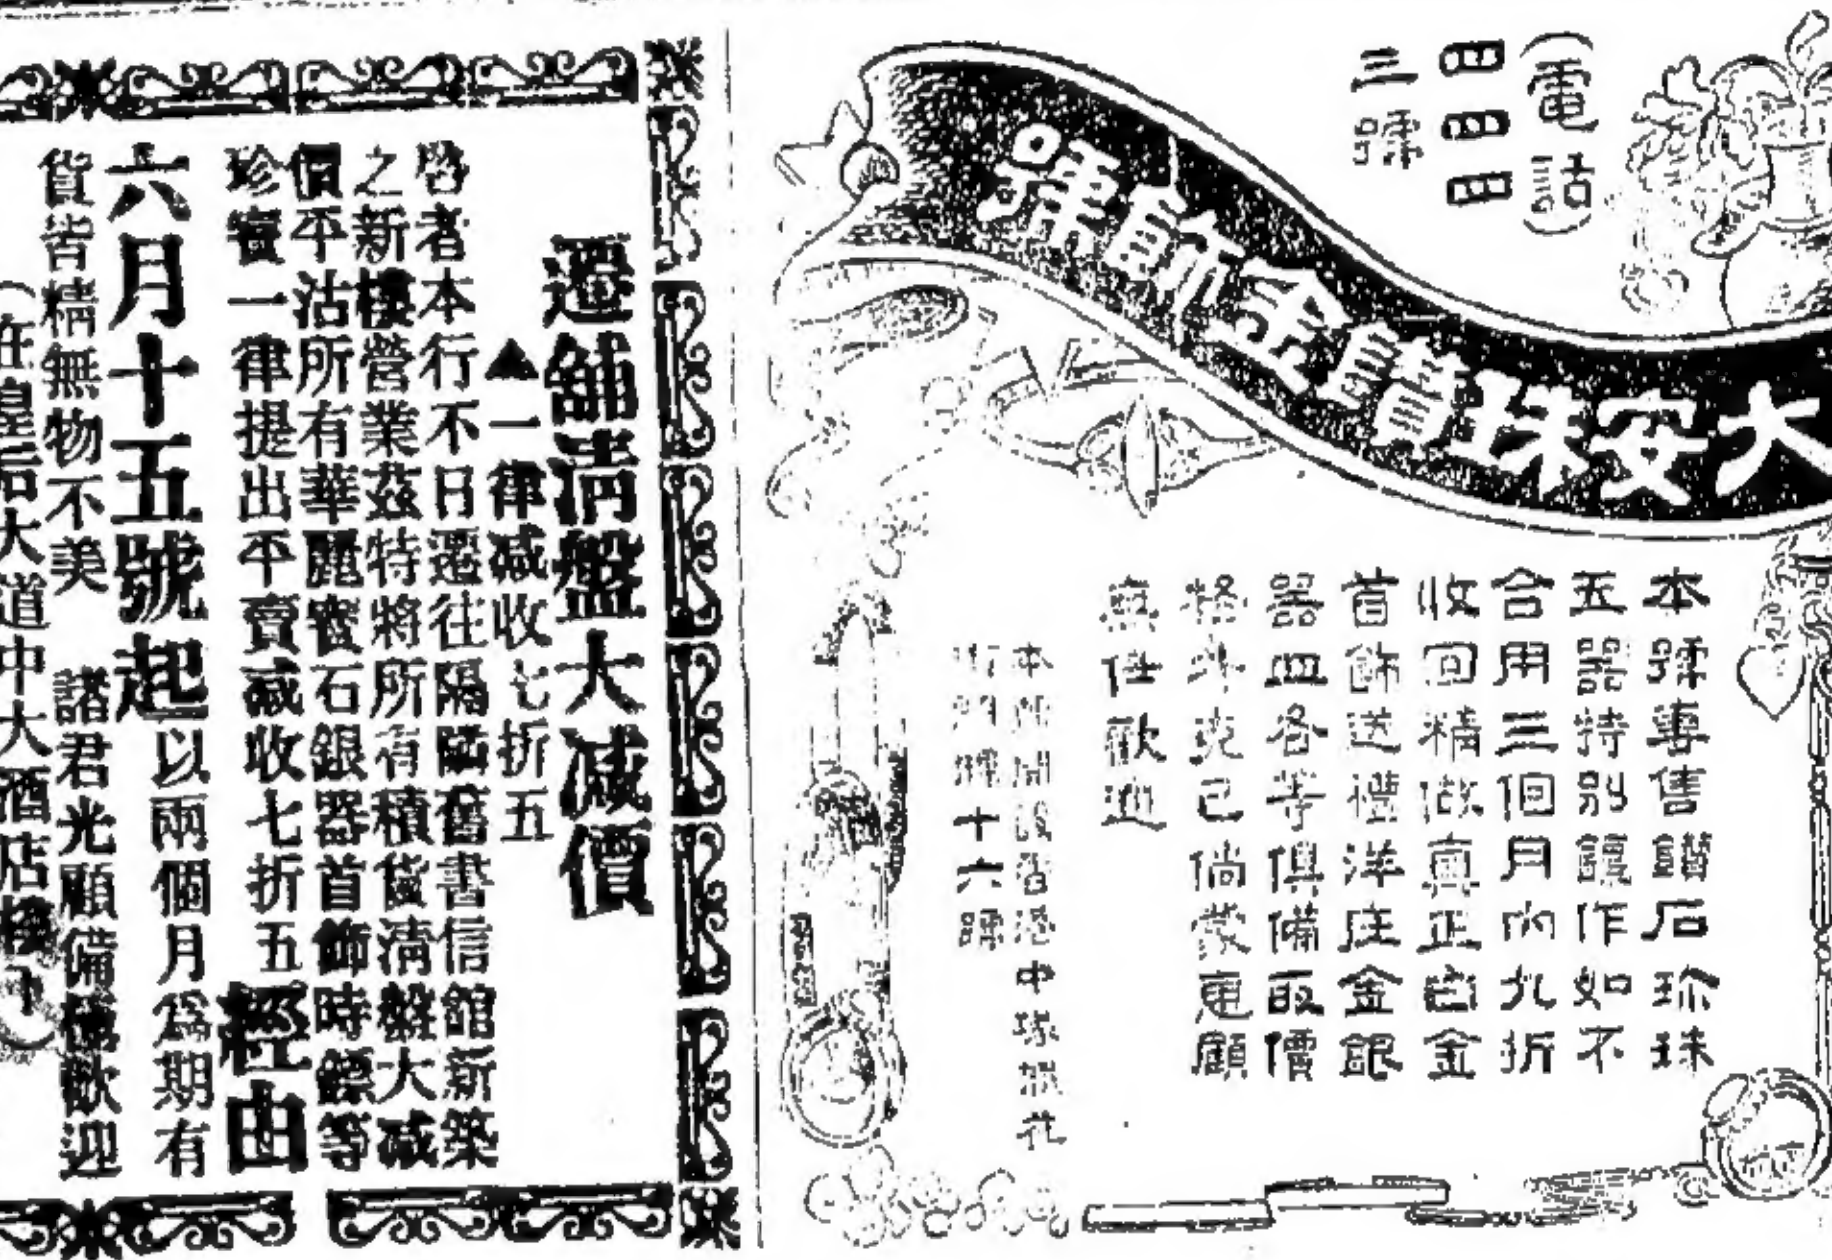 (電話)
四四四
三號
大安珠寶金飾號
本號專售鑽石珍珠
五器特別鑲作如不
合用三個月內九折
收回精做真正白金
首飾送禮洋庄金銀
器皿各等俱備取價
格外克已倘蒙惠顧
無任歡迎
本號開設香港中環擺花
街門牌十六號
遷舖清盤大减價
▲一律减收七折五
啓者本行不日遷往隔隣舊書信館新築
之新樓營業茲特將所有積貨清盤大减
價平沽所有華麗寶石銀器首飾時鏢等
珍寶一律提出平賣减收七折五經由
六月十五號起以兩個月爲期有
貨皆精無物不美 諸君光顧備極歡迎
(在皇后大道中大酒店樓下)